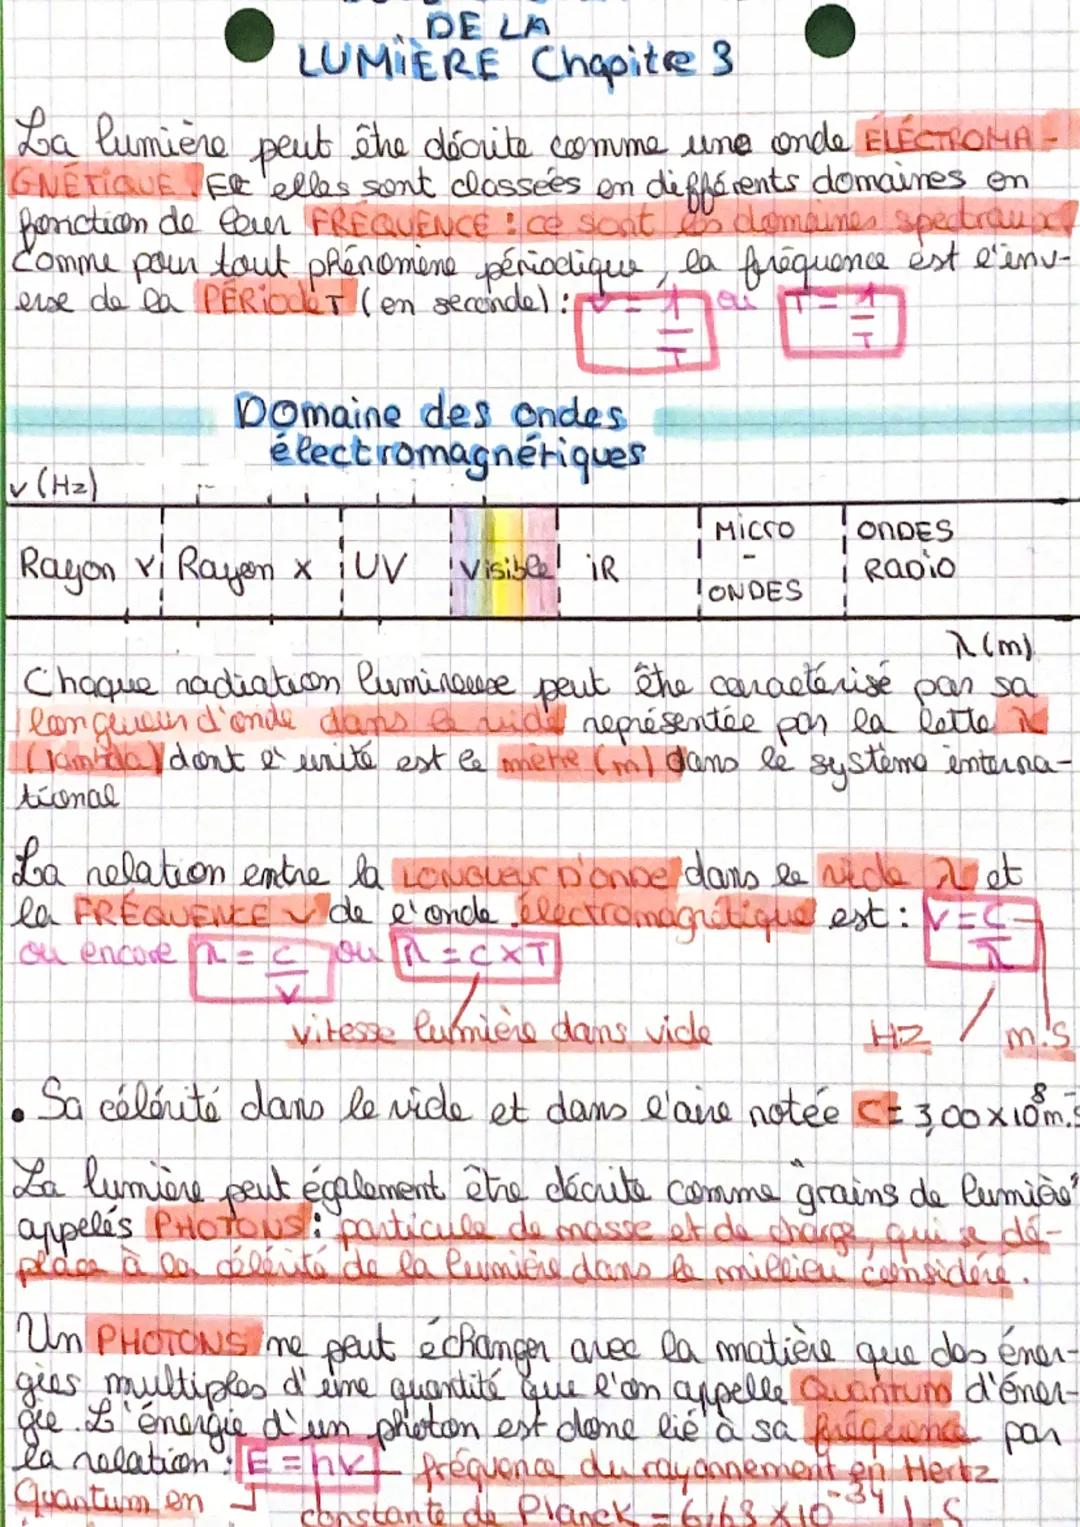 DE LA
LUMIÈRE Chapitre 3
La lumière peut être décrite comme une onde ÉLÉCTROMA-
GNÉTIQUE. Et elles sont classées en différents domaines en
fonction de leur FRÉQUENCE : ce sont les domaines spectraux
Comme pour tout phénomène périodique, la fréquence est l'inv-
erse de la PÉRIODE T (en seconde) : ν = 1/T ou T = 1/T
Domaine des ondes
électromagnétiques
ν (Hz)
Rayon γ Rayon x UV Visible iR MICRO - ONDES ONDES RADIO
λ (m)
Chaque radiation lumineuse peut être caractérisé par sa
longueur d'onde dans le vide représentée par la lettre λ
(lambda) dont l'unité est le mètre (m) dans le système interna-
tional
La relation entre la LONGUEUR D'ONDE dans le vide λ et
la FRÉQUENCE ν de l'onde électromagnétique est : ν = C/λ
ou encore λ = C/ν ou λ = C × T
vitesse lumière dans vide HZ m.s
• Sa célérité dans le vide et dans l'aire notée C = 3,00 × 10⁸ m.s⁻
La lumière peut également être décrite comme "grains de lumière"
appelés PHOTONS : particule de masse et de charge, qui se dé-
place à la célérité de la lumière dans le millieu considéré.
Un PHOTONS ne peut échanger avec la matière que des éner-
gies multiples d'une quantité que l'on appelle Quantum d'éner-
gie. L'énergie d'un photon est donc lié à sa fréquence par
la relation : E = hν fréquence du rayonnement en Hertz
Quantum en constante de Planck = 6,63 × 10⁻³⁴ J.S